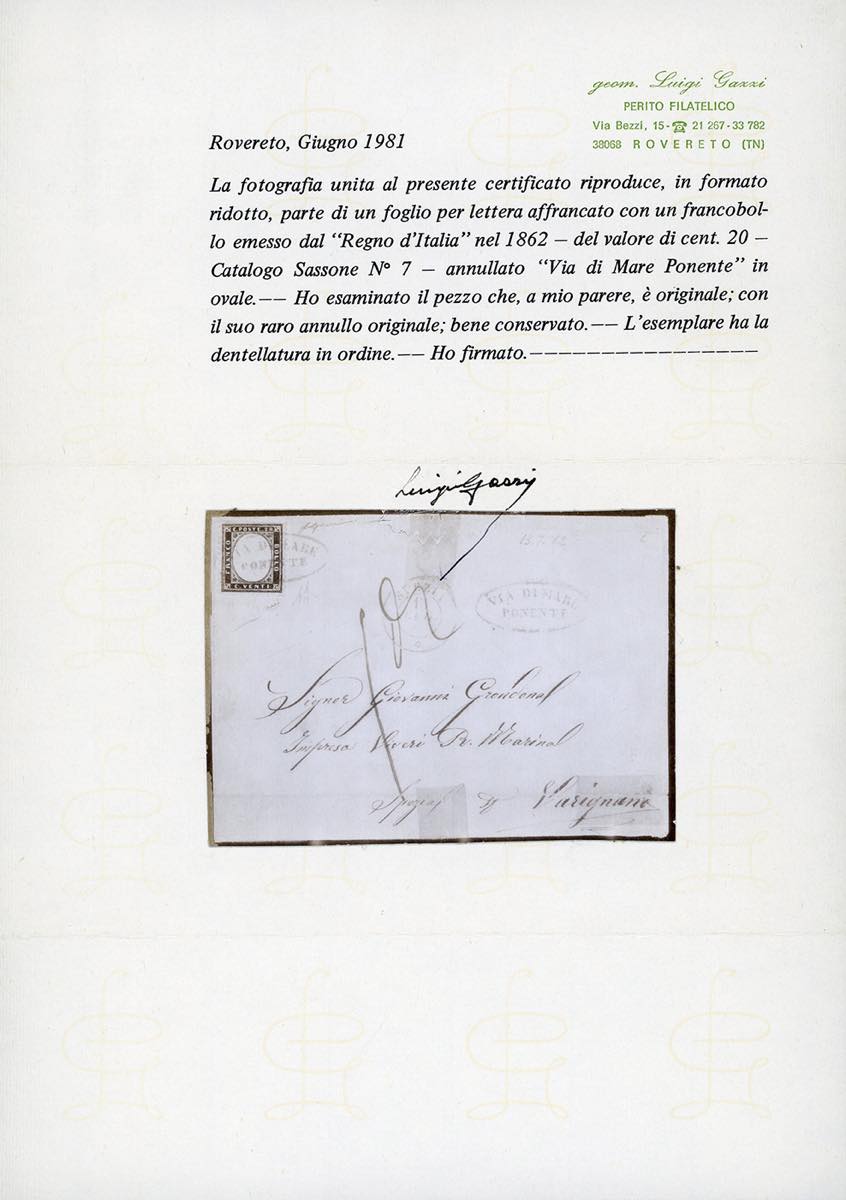 geom. Luigi Gazzi
PERITO FILATELICO
Via Bezzi, 15 - ☎ 21 267 - 33 782
38068 ROVERETO (TN)
Rovereto, Giugno 1981
La fotografia unita al presente certificato riproduce, in formato
ridotto, parte di un foglio per lettera affrancato con un francobol-
lo emesso dal “Regno d’Italia” nel 1862 – del valore di cent. 20 –
Catalogo Sassone N° 7 – annullato “Via di Mare Ponente” in
ovale.–– Ho esaminato il pezzo che, a mio parere, è originale; con
il suo raro annullo originale; bene conservato.–– L’esemplare ha la
dentellatura in ordine.–– Ho firmato.–––––––––––––––––
Luigi Gazzi
C. POSTE. 20
FRANCO
BOLLO
C. VENTI
VIA DI MARE
PONENTE
VIA DI MARE
PONENTE
Signor Giovanni
Impresa Viveri R. Marina
Spezia Varignano